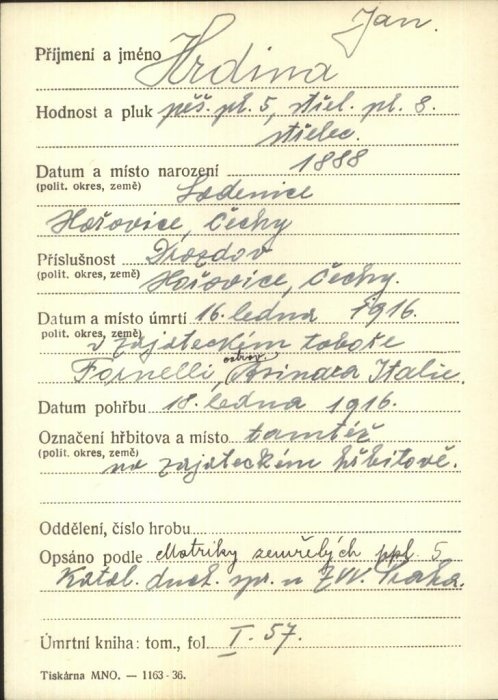 Jan.
Příjmení a jméno Hrdina
Hodnost a pluk pěš. pl. 5, střel. pl. 8.
střelec.
Datum a místo narození 1888
(polit. okres, země) Lodenice
Hořovice, Čechy
Příslušnost Drozdov
(polit. okres, země) Hořovice, Čechy.
Datum a místo úmrtí 16. ledna 1916.
(polit. okres, země) v zajateckém táboře
ostrov
Fornelli, Asinara Italie.
Datum pohřbu 18. ledna 1916.
Označení hřbitova a místo tamtéž
(polit. okres, země)
na zajateckém hřbitově.
Oddělení, číslo hrobu
Opsáno podle Matriky zemřelých ppl. 5
Katol. duch. spr. u ZVV. Praha.
Úmrtní kniha: tom., fol. I. 57.
Tiskárna MNO. — 1163-36.